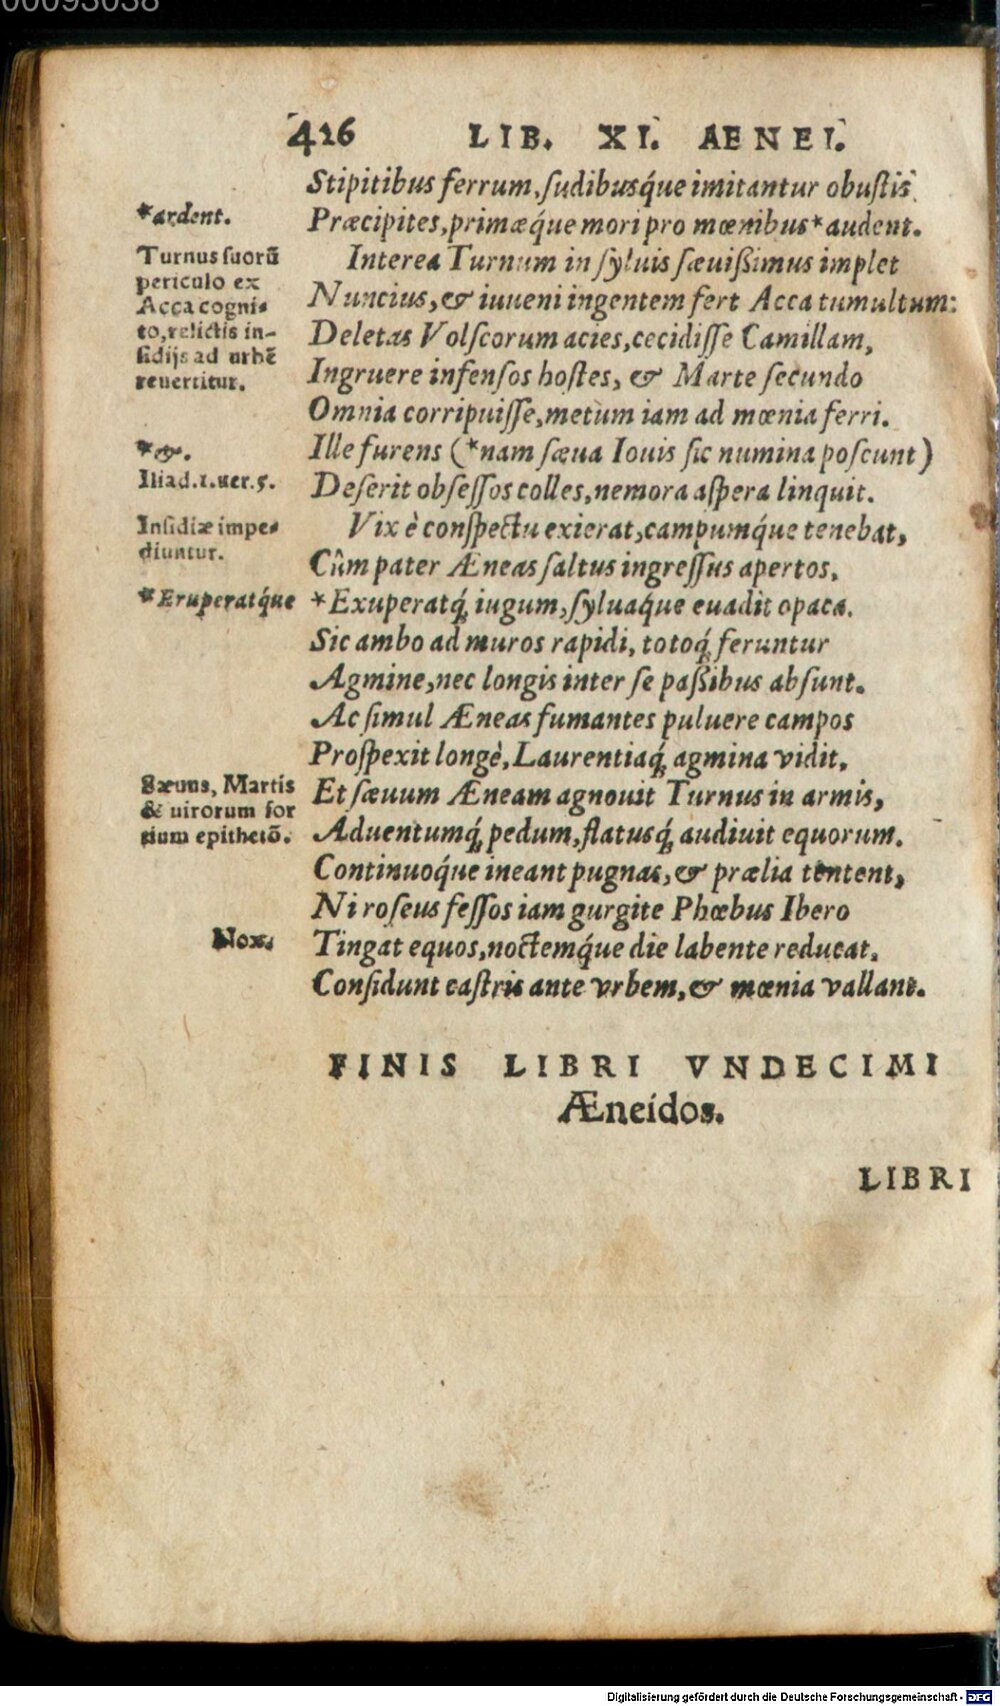 00093038
426 LIB. XI. AENEI.
Stipitibus ferrum, sudibusq́ue imitantur obustis.
*ardent.
Præcipites, primæq́ue mori pro mœnibus *audent.
Turnus suorũ
periculo ex
Acca cogni-
to, relictis in-
sidijs ad urbẽ
reuertitur.
Interea Turnum in syluis sæuißimus implet
Nuncius, & iuueni ingentem fert Acca tumultum:
Deletas Volscorum acies, cecidisse Camillam,
Ingruere infensos hostes, & Marte secundo
Omnia corripuisse, metum iam ad mœnia ferri.
*&.
Iliad.1.uer.5.
Ille furens (*nam sæua Iouis sic numina poscunt)
Deserit obsessos colles, nemora aspera linquit.
Insidiæ impe-
diuntur.
Vix è conspectu exierat, campumq́ue tenebat,
Cùm pater Æneas saltus ingressus apertos,
*Eruperatq́ue
*Exuperatq́; iugum, syluaq́ue euadit opaca.
Sic ambo ad muros rapidi, totoq́; feruntur
Agmine, nec longis inter se paßibus absunt.
Ac simul Æneas fumantes puluere campos
Prospexit longè, Laurentiaq́; agmina vidit,
Sæuus, Martis
& uirorum for
tium epithetõ.
Et sæuum Æneam agnouit Turnus in armis,
Aduentumq́; pedum, flatusq́; audiuit equorum.
Continuoq́ue ineant pugnas, & prælia tentent,
Ni roseus fessos iam gurgite Phœbus Ibero
Nox.
Tingat equos, noctemq́ue die labente reducat.
Considunt castris ante vrbem, & mœnia vallant.
FINIS LIBRI VNDECIMI
Æneidos.
LIBRI
Digitalisierung gefördert durch die Deutsche Forschungsgemeinschaft - DFG